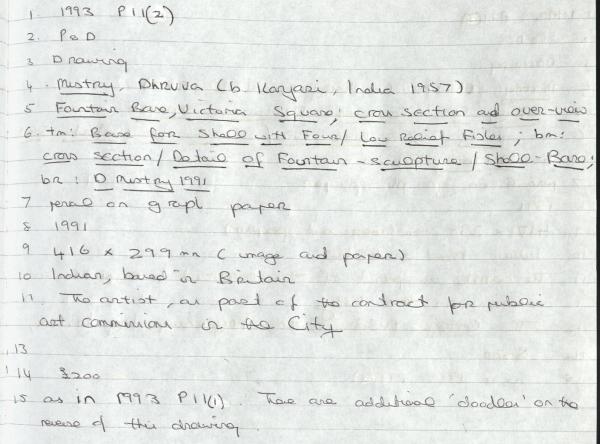 1. 1993 P11(2)
2. P&D
3 Drawing
4. Mistry, Dhruva (b. Kanjari, India 1957)
5 Fountain Base, Victoria Square; cross section and over-view
6. tm: Base for Shell with Four/ Low Relief Fishes; bm:
cross section/ Detail of Fountain-sculpture/ Shell-Base;
br: D Mistry 1991
7 pencil on graph paper
8 1991
9 416 x 299 mm (image and paper)
10 Indian, based in Britain
11. The artist, as part of the contract for public
art commissions in the City
13
14 £200
15 as in 1993 P11(1). There are additional 'doodles' on the
reverse of this drawing.